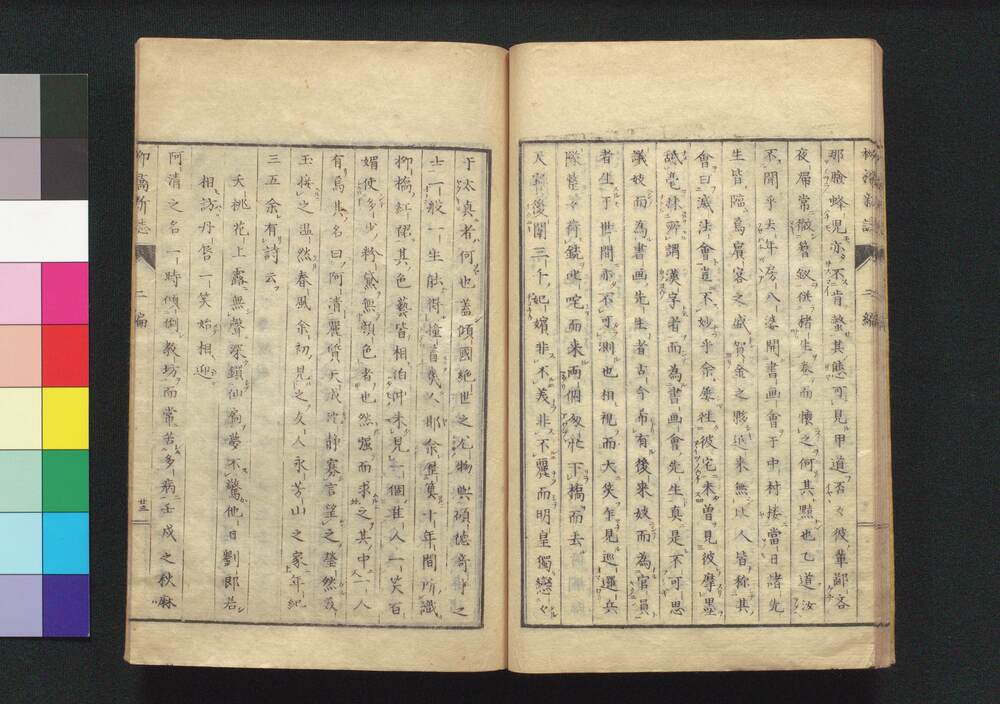 柳橋新誌 二編
那臉蜂見亦不肯螫其態可見甲道否々彼輩鄙吝
夜屬常微簪釵供豬生泰而懐之何其黠也乙道汝
不聞乎去年房八婆開書画會于中村楼當日諸先
生皆臨為賓客之盛賀金之夥近来無比人皆称其
會曰滅法會豈不妙乎余屡往彼宅未曽見彼摩墨
舐毫所謂漢字者而為書画會先生真是不可思
議妓而為書画先生者古今希有後来妓而為官員
者生于世間亦不可測也相視而大笑乍見巡邏兵
隊整々荷銃叱咤而来両個匆忙下橋而去
天寶後闈三千妃嬪非不美非不麗而明皇獨戀々
于太真者何也蓋傾國絶世之尤物與碩徳奇才之
士一般一生能衝撞着幾人耶余屈算十年間所識
柳橋紅裙其色藝皆相伯仲未見一個佳人一笑百
媚使多少粉黛無顔色者也然强而求之其中一人
有焉其名曰阿清麗質天成沈静寡言望之瑩然故
玉挨之温然春風余初見之友人永芳山之家年紀
三五余有詩云
夭桃花上露無聲深鎖仙扃夢不驚他日劉郎若
相訪丹唇一笑始相迎
阿清之名一時傾倒教坊而常苦多病壬戌之秋麻
柳橋新志 二編 廿三